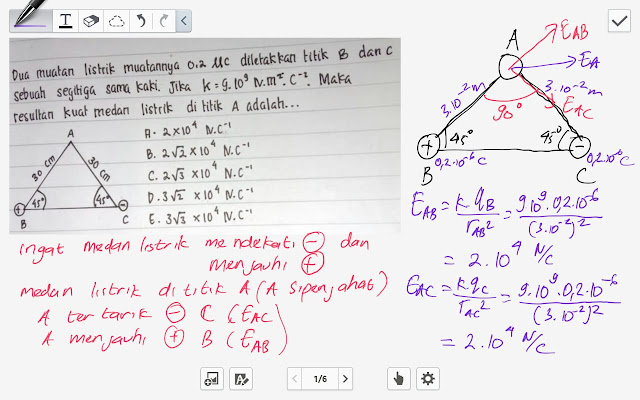 T
Dua muatan listrik muatannya 0,2 MC diletakkan titik B dan C
sebuah segitiga sama kaki. Jika k = 9.10⁹ N.m².C⁻². Maka
resultan kuat medan listrik di titik A adalah...
A. 2 x 10⁴ N.C⁻¹
B. 2√2 x 10⁴ N.C⁻¹
C. 2√3 x 10⁴ N.C⁻¹
D. 3√2 x 10⁴ N.C⁻¹
E. 3√3 x 10⁴ N.C⁻¹
A
30 cm
30 cm
45°
45°
+
-
B
C
ingat medan listrik mendekati ⊖ dan
menjauhi ⊕
medan listrik di titik A (A sipenjahat)
A tertarik ⊖ C (E_AC)
A menjauhi ⊕ B (E_AB)
A
E_AB
E_A
E_AC
3.10⁻² m
3.10⁻² m
90°
45°
45°
+
-
0,2.10⁻⁶ C
0,2.10⁻⁶ C
B
C
E_AB = k q_B / r_AB² = 9.10⁹.0,2.10⁻⁶ / (3.10⁻²)²
= 2.10⁴ N/C
E_AC = k q_C / r_AC² = 9.10⁹.0,2.10⁻⁶ / (3.10⁻²)²
= 2.10⁴ N/C
1/6